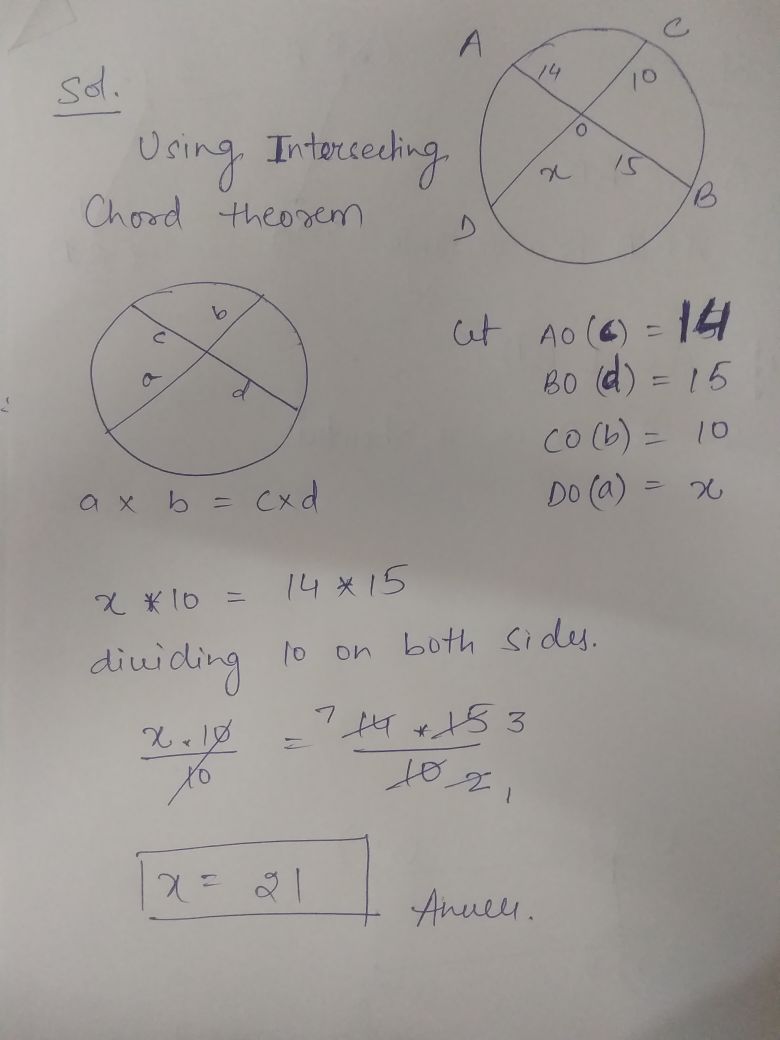 A
C
14
10
O
x
15
D
B
Sol.
Using Intersecting
Chord theorem
b
c
a
d
let AO (c) = 14
BO (d) = 15
CO (b) = 10
DO (a) = x
a × b = c×d
x * 10 = 14 * 15
dividing 10 on both sides.
x . 10 = 7 14 * 15 3
10 10 2 1
x = 21